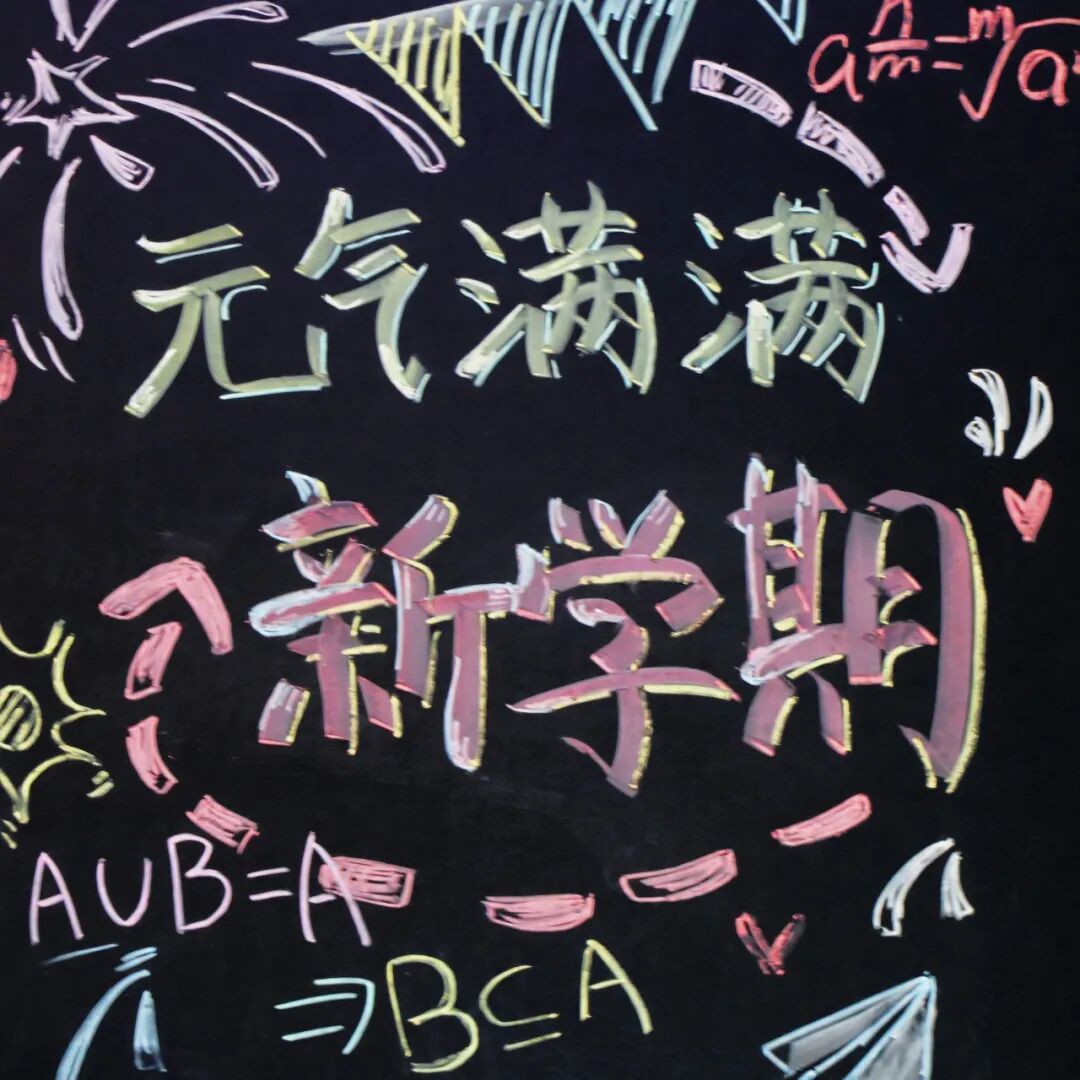 a^(n/m)=ᵐ√a
元气满满
新学期
A∪B=A
⇒B⊆A